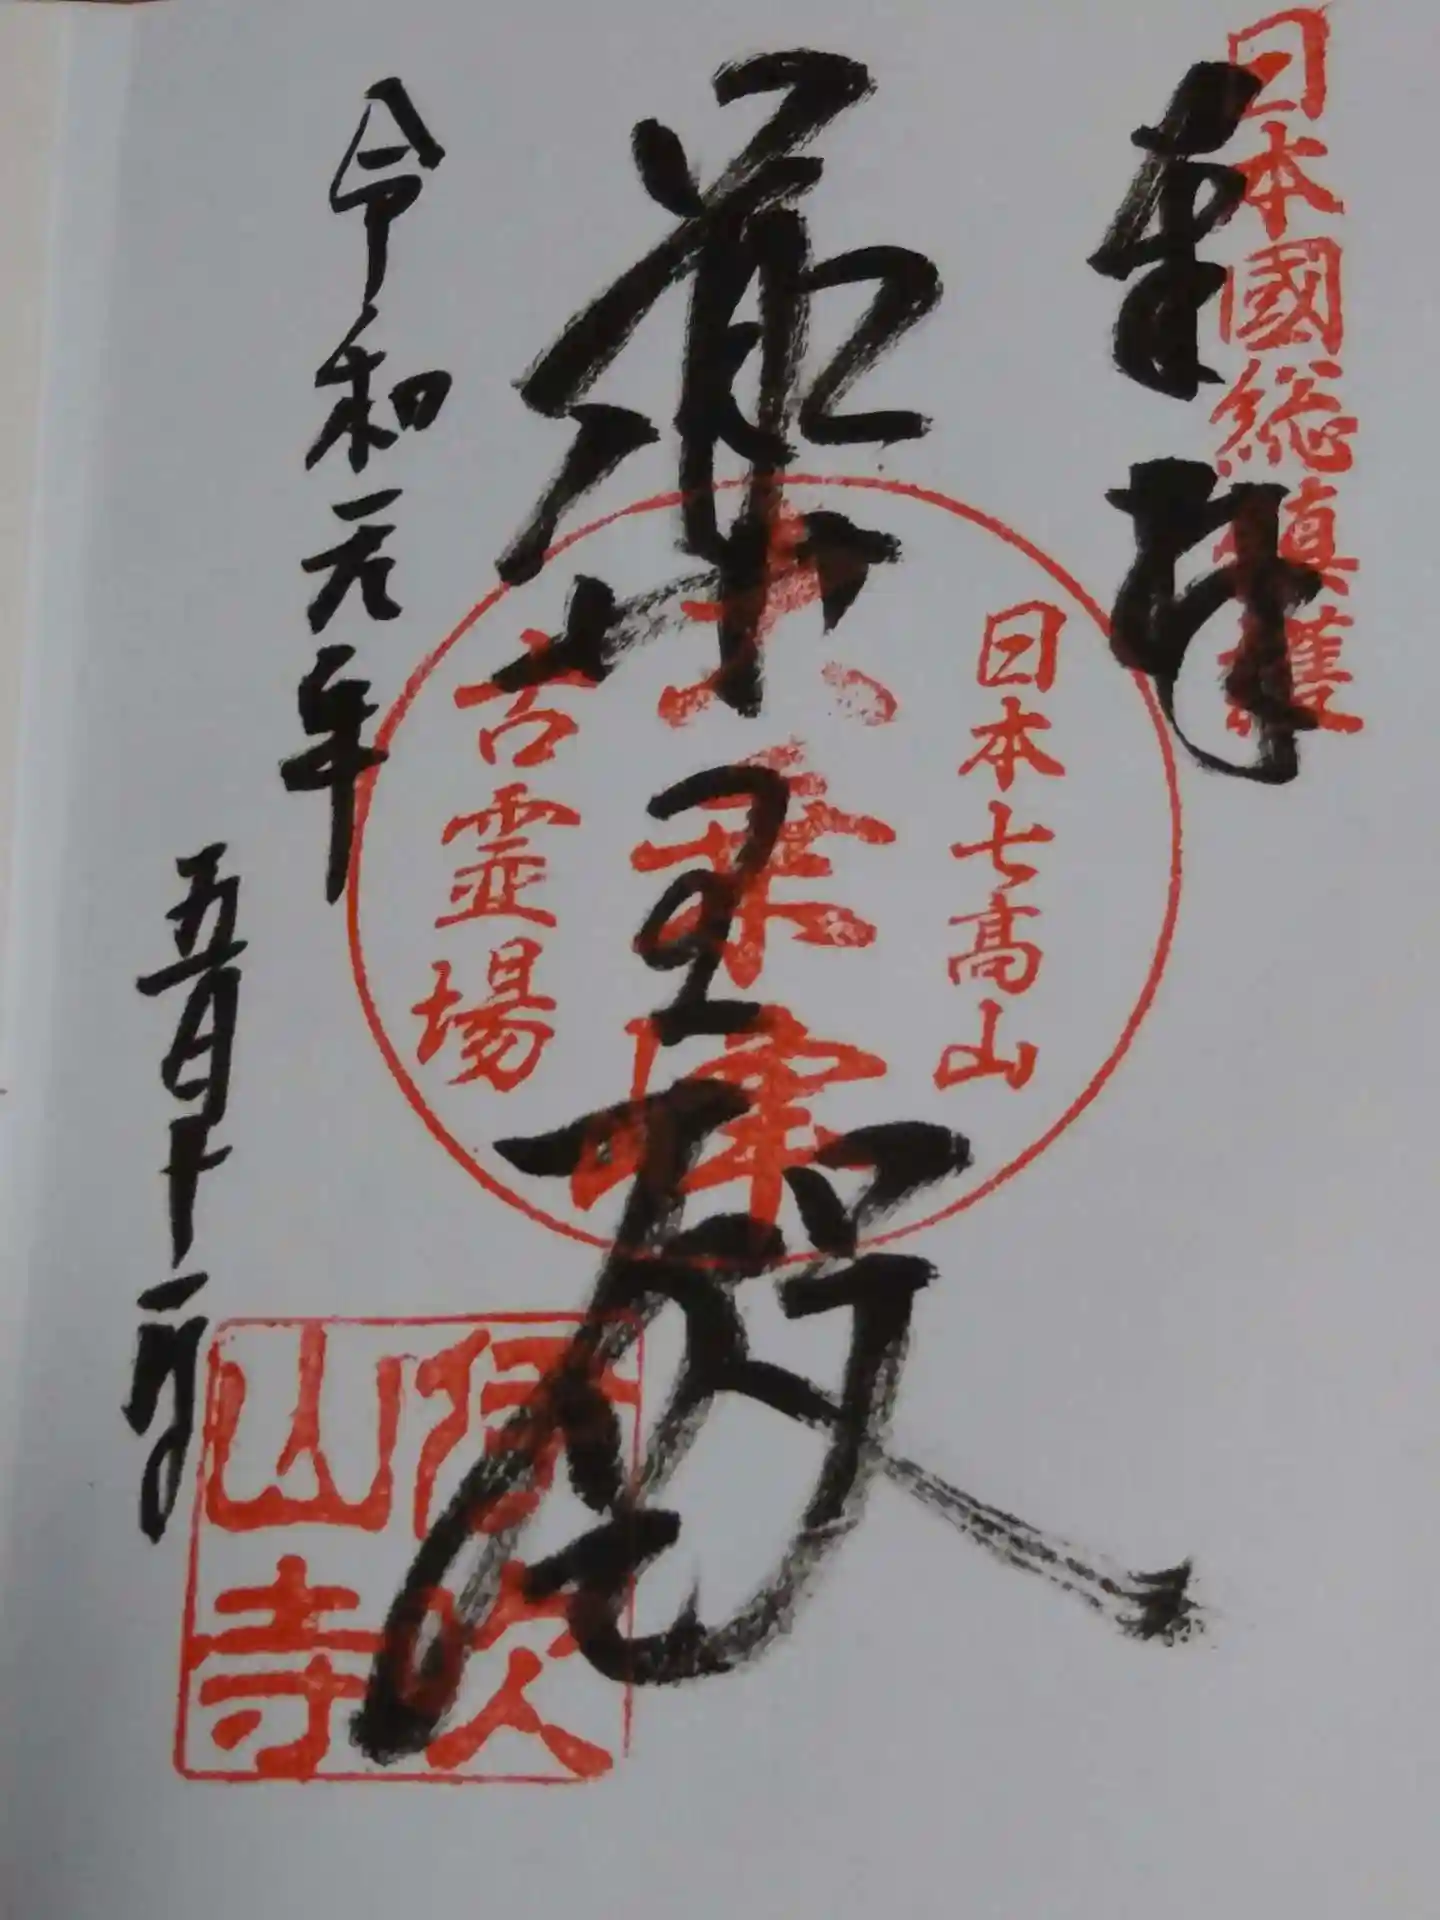 日本國総鎮護
奉拝
日本七高山
大乗峰
古霊場
薬王殿
令和元年
五月十一日
伊吹
山寺